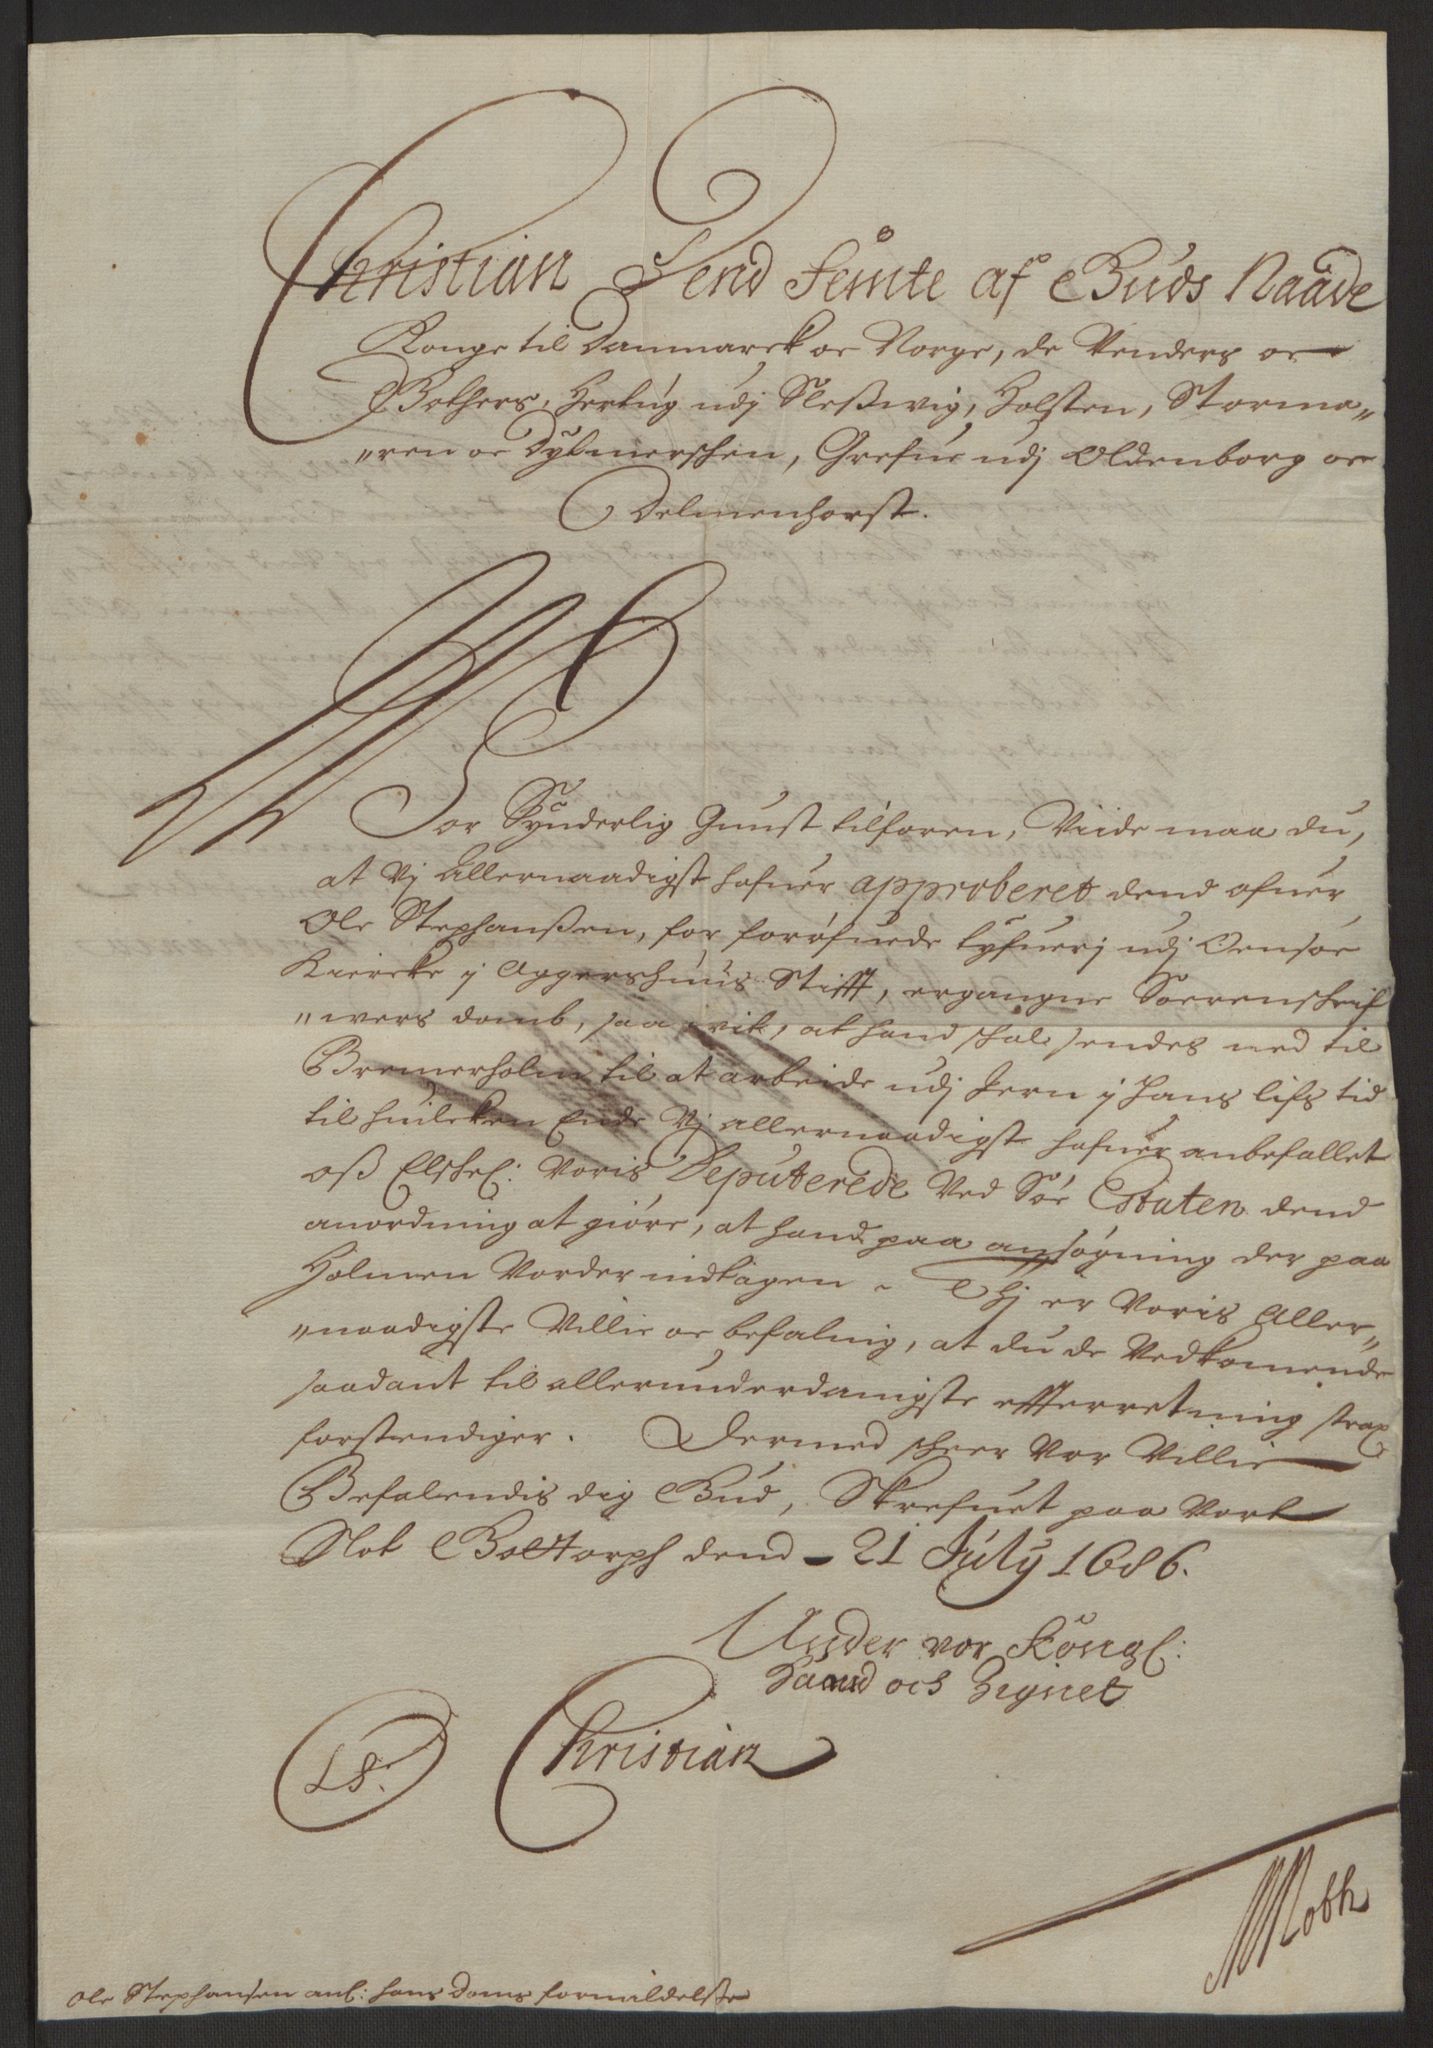 Christian Dend Femte af Guds Naade
Konge til Danmarck oc Norge, de Venders oc
Gothers, Hertúg udj Sleßwig, Holsten, Storma„
„ren oc Dytmerschen, Grefue udj Oldenborg oc
Delmenhorst.
Vor Synderlig Gunst tilforen, Viide maa du,
at Vj Allernaadigst hafuer approberet dend ofuer
Ole Stephanßen, for forøfuede tyfuerj udj Oensøe
Kircke j Aggershuus Stifft, ergangne Soerenschrif
„wers domb, saa vit, at hand schal sendes ned til
Bremerholm til at arbeide udj Jern j hans lifs tid
til huilcken Ende Vj allernaadigst hafuer anbefallet
oß Elschel: Voris Deputerede Ved Søe Estaten dend
anordning at giøre, at hand paa ansøgning der paa
Holmen Vorder indtagen - Thj er Voris Aller„
„naadigste Villie oc befaling, at du de Vedkomende
saadant til allerunderdanigste efterretning strax
forstendiger. Dermed scheer Vor Villie
Befalendis dig Gud, Skrefuet paa Vort
Slot Gottorph dend - 21 July 1686.
Under vor Köngl:
Haand och Zignet
LS. Christian
Moth
Ole Stephansen anl: hans Doms formildelse